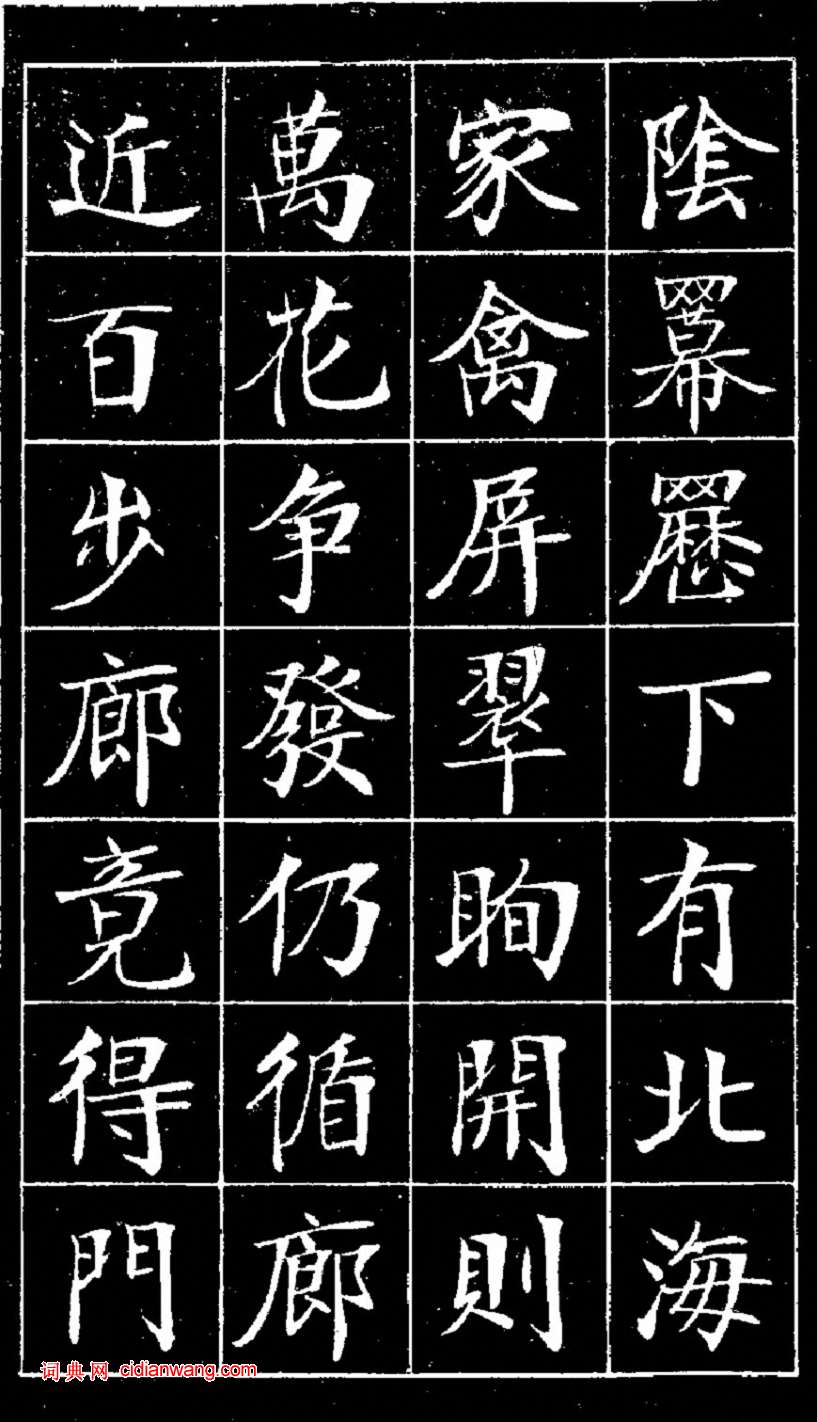 陰羃䍥下有北海
家禽屏翠眴開則
萬花争發仍循廊
近百步廊竟得門
词典网 cidianwang.com